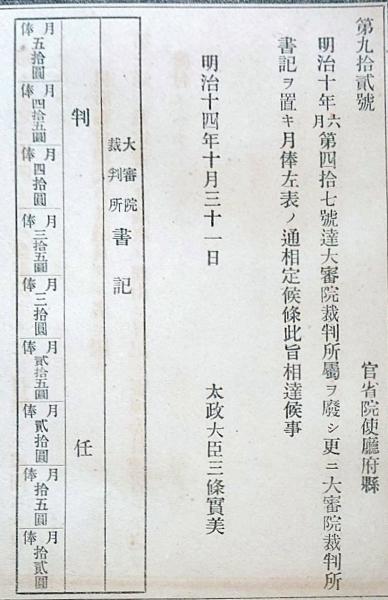 第九拾貳號
官省院使廳府縣
明治十年六月第四拾七號達大審院裁判所屬ヲ廢シ更ニ大審院裁判所
書記ヲ置キ月俸左表ノ通相定候條此旨相達候事
明治十四年十月三十一日
太政大臣三條實美
大審院裁判所書記
判任
月俸五拾圓
月俸四拾五圓
月俸四拾圓
月俸三拾五圓
月俸三拾圓
月俸貳拾五圓
月俸貳拾圓
月俸拾五圓
月俸拾貳圓